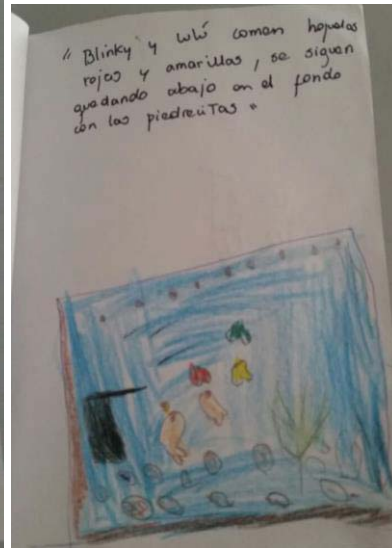 "Blinky" y Lulú comen hojuelas
rojas y amarillas, se siguen
quedando abajo en el fondo
con las piedrecitas"